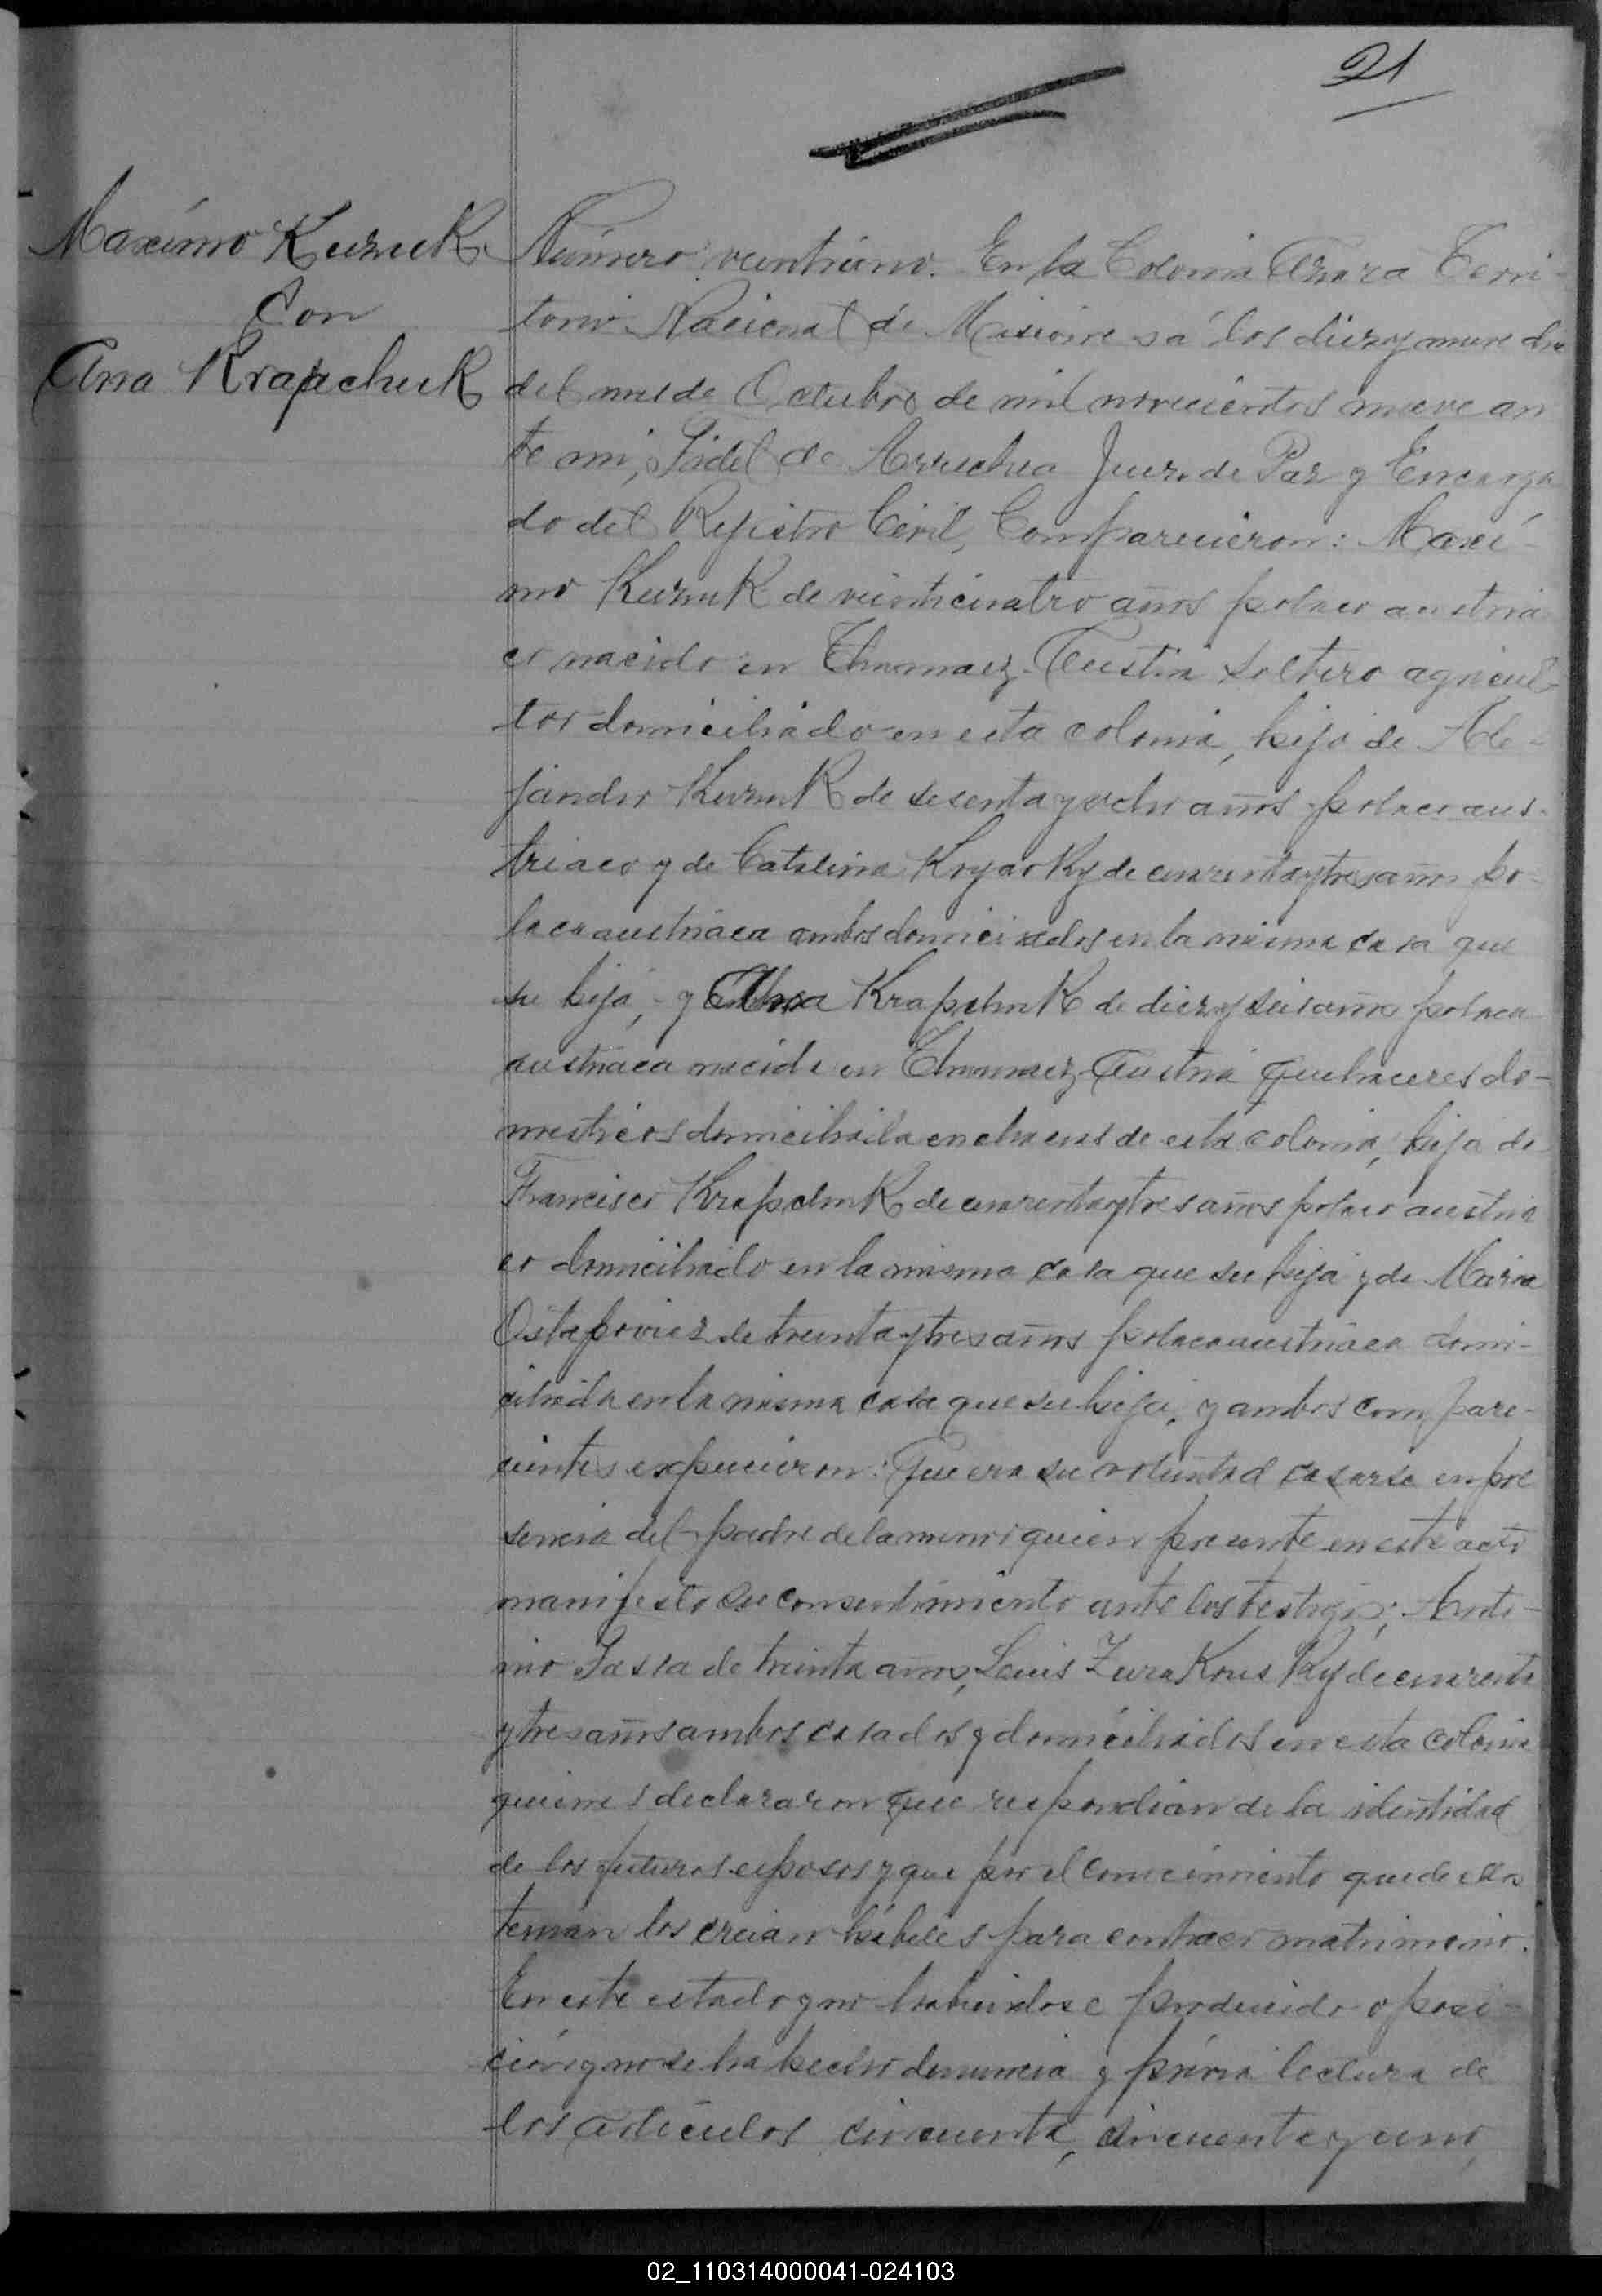 21
Maxímo KuzuK
Con
Ana KrapchuK
Número veintiuno. En la Colonia Azara Terri-
torio Nacional de Misiones á los diez y nueve dias
del mes de Octubre de mil novecientos nueve an
te mi, Fidel de Arrechea Juez de Paz y Encarga
do del Rejistro Civil, Comparecieron: Maxí-
mo KuzuK de veinticuatro años polaco austria
co nacido en Thumacz Austria soltero agricul-
tor domiciliado en esta colonia, hijo de Ale-
jandro KuzuK de sesenta y ocho años polaco aus-
triaco y de Catalina de cuarenta y tres años po-
laca austriaca ambos domiciliados en la misma casa que
su hijo, y Ana KrapchuK de diez y seis años polaca
austriaca nacida en Thumacz Austria quehaceres do-
mesticos domiciliada en chacras de esta colonia, hija de
Francisco KrapchuK de cuarenta y tres años polaco austria
co domiciliado en la misma casa que su hija y de Maria
Ostapoviez de treinta y tres años polaca austriaca domi-
ciliada en la misma casa que su hija, y ambos compare-
cientes expucieron: Que era su voluntad casarse en pre
sencia del padre de la menor quien presente en este acto
manifesto su consentimiento ante los testigos; Anto-
nio de treinta años, Luis ZuraKousKy de cuarenta
y tres años ambos casados y domiciliados en esta colonia
quienes declararon que respondian de la identidad
de los futuros esposos y que por el conocimiento que de ellos
tenian los creian habiles para contraer matrimonio.
En este estado y no habiendose producido oposi-
ción y no se ha hecho denuncia y prévia lectura de
los articulos cincuenta, cincuenta y uno,
02_110314000041-024103